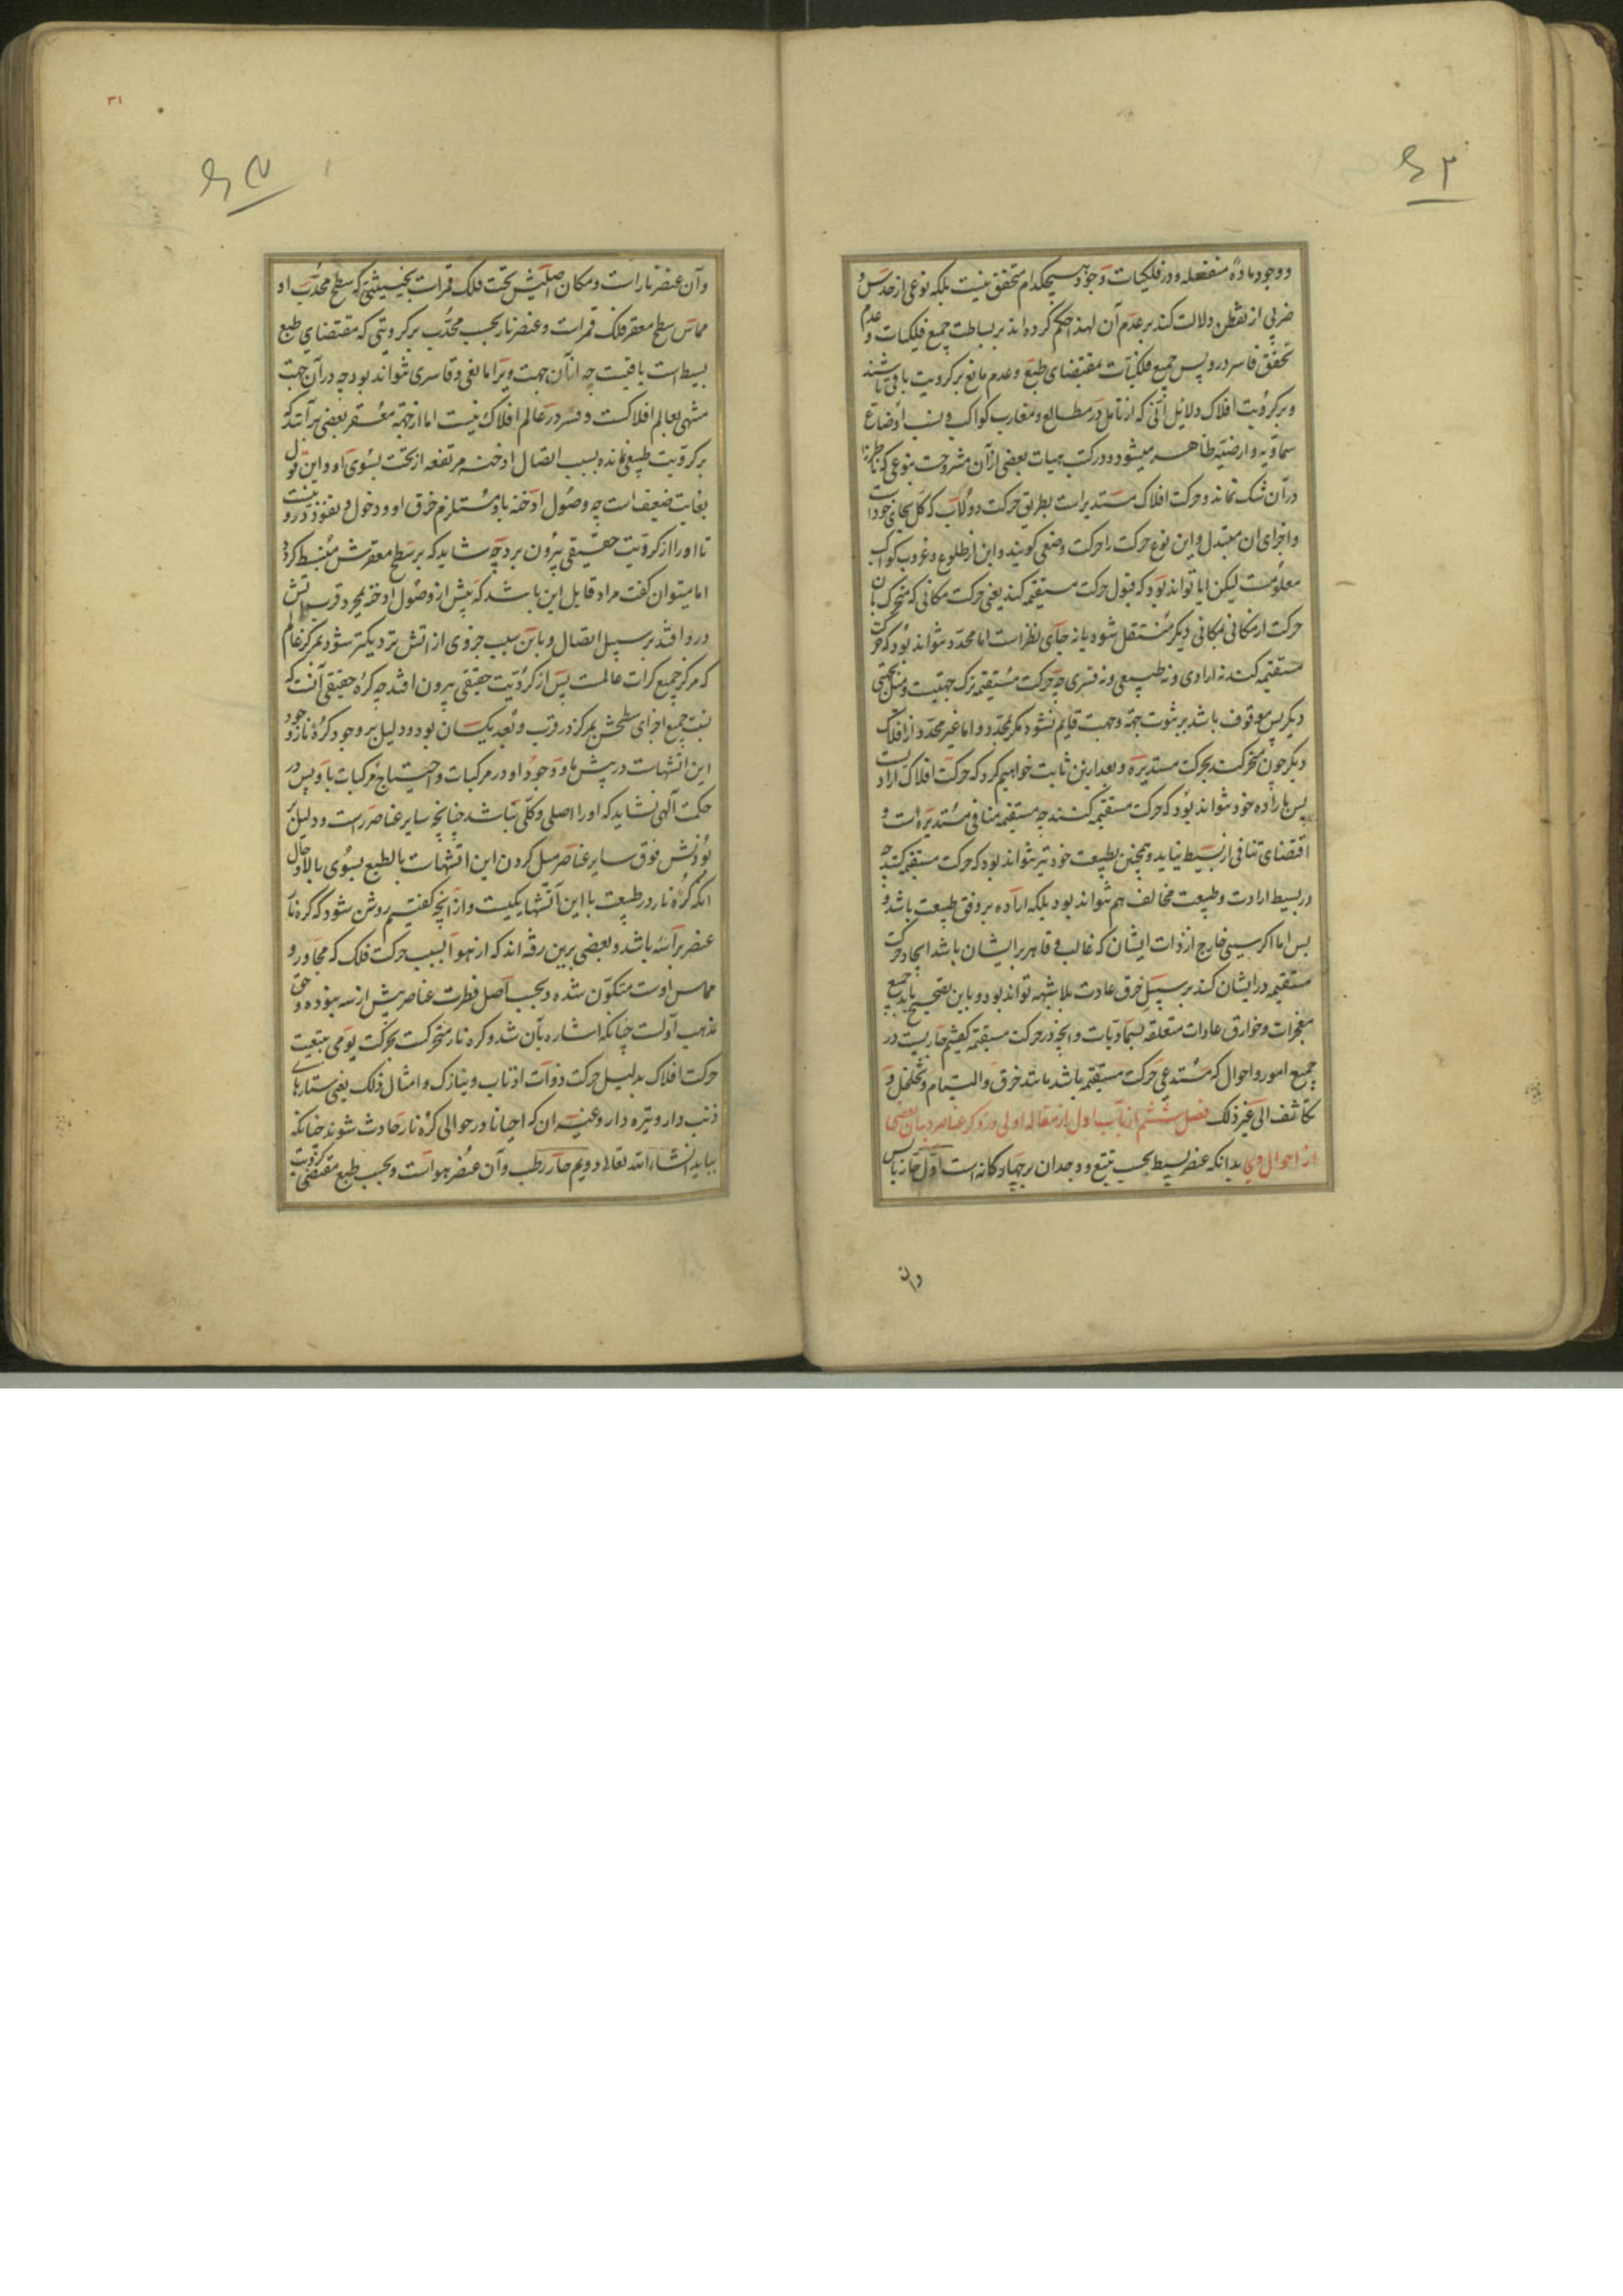 ووجود مادهٔ منفعله ودر فلکیات وجود هیچکدام متحقق نیست بلکه نوعی از حدس و
ضربی از تفطن دلالت کند بر عدم آن لهذا حکم کرده اند بر بساطت جمیع فلکیات و عدم
تحقق قاسر درو پس جمیع فلکیات بمقتضای طبع و عدم مانع بر کرویت باقی باشند
و بر کرویت افلاک دلایل انی که از تامل در مطالع و مغارب کواکب و نسب اوضاع
سماویه و ارضیه ظاهر میشود ودر کتب هیات بعضی از آن مشروحست بنوعی که ناظر را
در آن شک نماند و حرکت افلاک مستدیر است بطریق حرکت دولاب که کل بجای خود است
و اجزای ان متبدل و این نوع حرکت را حرکت وضعی کویند و این از طلوع و غروب کواکب
معلومست لیکن ایا تواند بود که قبول حرکت مستقیمه کند یعنی حرکت مکانی که متحرک بان
حرکت از مکانی بمکانی دیگر منتقل شود یانه جای نظر است اما محدد نتواند بود که حرکت
مستقیمه کند نه ارادی و نه طبیعی و نه قسری چه حرکت مستقیمه ترک جهتیست و میل بجهتی
دیگر پس موقوف باشد بر ثبوت جهة و جهت قایم نشود مگر بمحدد و اما غیر محدد از افلاک
دیگر چون متحرکند بحرکت مستدیره و بعد ازین ثابت خواهیم کرد که حرکت افلاک ارادیست
پس باراده خود نتواند بود که حرکت مستقیمه کنند چه مستقیمه منافی مستدیره است و
اقتضای تنافی از بسیط نیاید و همچنین بطبیعت خود نیز نتواند بود که حرکت مستقیمه کنند چه
در بسیط ارادت و طبیعت مخالف هم نتواند بود بلکه اراده بر وفق طبیعت باشد و
بس اما اکر سببی خارج از ذات ایشان که غالب و قاهر بر ایشان باشد ایجاد حرکت
مستقیمه در ایشان کند بر سبیل خرق عادت بلا شبهه تواند بود و باین تصحیح یابد جمیع
معجزات و خوارق عادات متعلقه بسماویات و انچه در حرکت مستقیمه کفتیم جاریست در
جمیع امور و احوال که مستدعی حرکت مستقیمه باشد مانند خرق و التیام و تخلخل و
تکاثف الی غیر ذلک فصل ششم از باب اول از مقاله اولی در ذکر عناصر و بیان بعضی
از احوال وی بدانکه عنصر بسیط بحسب تتبع و وجدان بر چهار کانه است اول حار یابس
وان
۳۱
وآن عنصر نار است و مکان اصلیش تحت فلک قمر است بحیثیتی که سطح محدب او
مماس سطح مقعر فلک قمر است و عنصر نار بحسب محدب بر کرویتی که مقتضای طبع
بسیط است باقیست چه از آن جهت ویرا مانعی و قاسری نتواند بود چه در آن جهت
منتهی بعالم افلاکست و قسر در عالم افلاک نیست اما از جهة مقعر بعضی بر آنند که
بر کرویت طبیعی نمانده بسبب اتصال ادخنه مرتفعه از تحت بسوی او و این قول
بغایت ضعیف است چه وصول ادخنه باو مستلزم خرق او و دخول و نفوذ درو نیست
تا او را از کرویت حقیقی بیرون برد چه شاید که بر سطح مقعرش منبسط کردد
اما میتوان کفت مراد قایل این باشد که پیش از وصول ادخنه بمجرد قرب اتش
در و افتد بر سبیل اتصال و باین سبب جزوی از اتش نزدیکتر شود بمرکز عالم
که مرکز جمیع کرات عالمست پس از کرویت حقیقی بیرون افتد چه کره حقیقی آنست که
نسبت جمیع اجزای سطحش بمرکز در قرب و بعد یکسان بود و دلیل بر وجود کره نار وجود
این اتشهاست در پیش ما و وجود او در مرکبات و احتیاج مرکبات باو پس در
حکمت آلهی نشاید که او را اصلی و کلی نباشد چنانچه سایر عناصر راست و دلیل بر
بودنش فوق سایر عناصر میل کردن این اتشهاست بالطبع بسوی بالا و حال
انکه کره نار در طبیعت با این آتشها یکیست و از آنچه کفتیم روشن شود که کره نار
عنصر براسه باشد و بعضی برین رفته اند که از هوا بسبب حرکت فلک که مجاور و
مماس اوست متکون شده و بحسب اصل فطرت عناصر بیش از سه نبوده و حق
مذهب اولست چنانکه اشاره بآن شد و کره نار متحرکست بحرکت یومی بتبعیت
حرکت افلاک بدلیل حرکت ذوات اذناب و نیازک و امثال ذلک یعنی ستارهای
ذنب دار و نیزه دار و غیر ان که احیانا در حوالی کره نار حادث شوند چنانکه
بیاید انشاء الله تعالی دویم حار رطب و آن عنصر هواست و بحسب طبع مقتضی کرویت